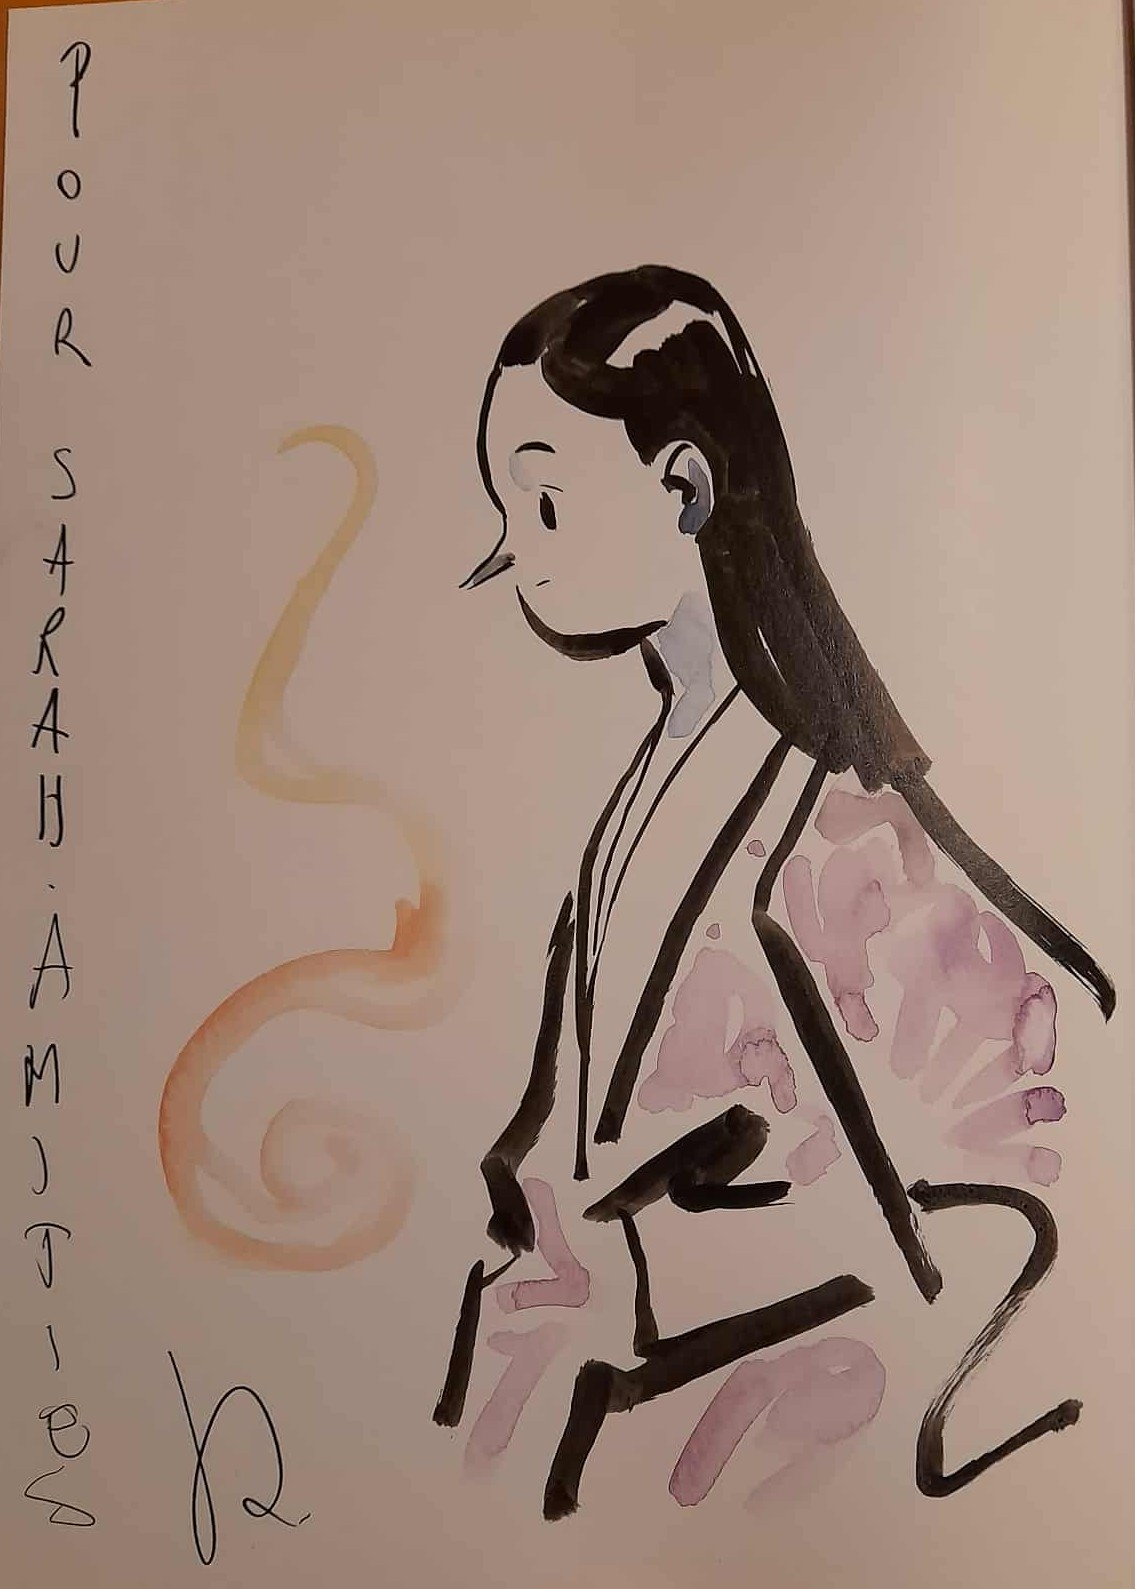 POUR SARAH. AMITIES